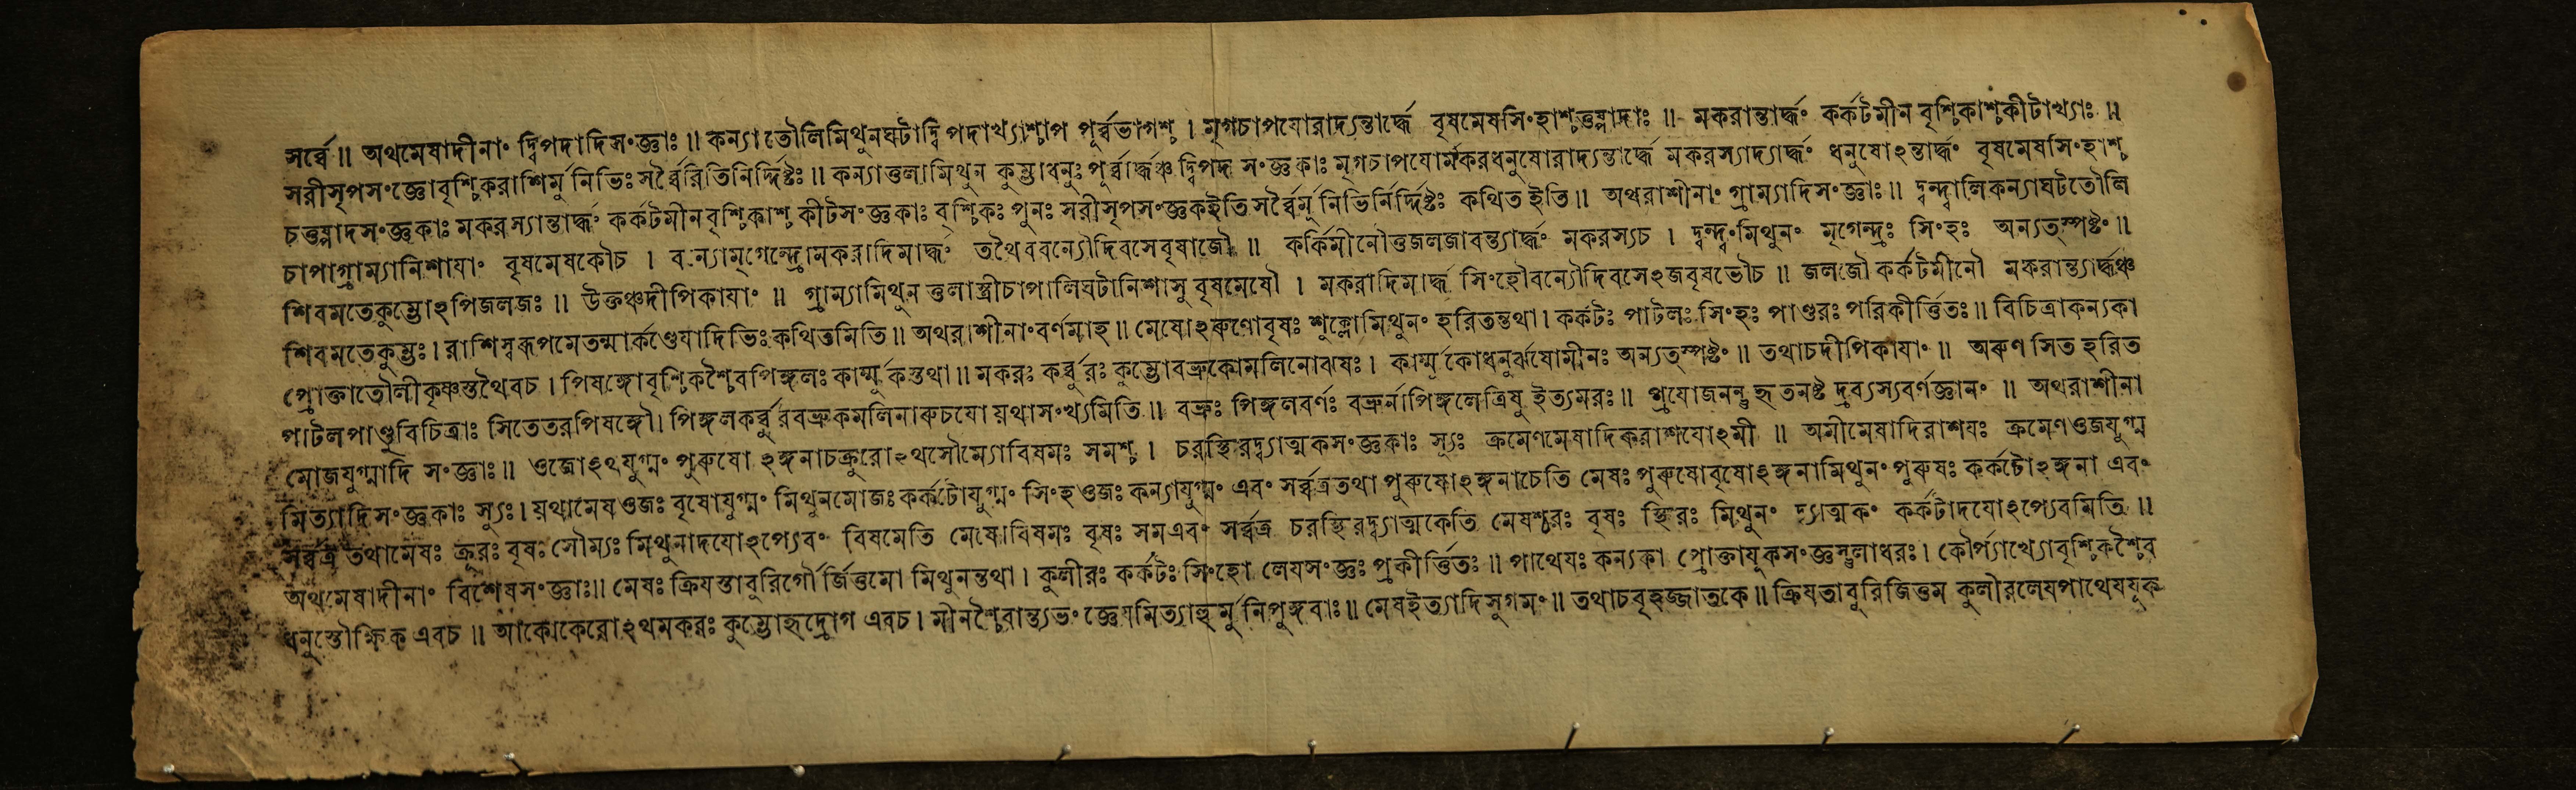 সর্ব্বে ॥ অথমেষাদীনাং দ্বিপদাদিসংজ্ঞাঃ ॥ কন্যাতৌলিমিথুনঘটাদ্বিপদাখ্যাশ্চাপ পূর্ব্বভাগশ্চ । মৃগচাপযোরাদ্যন্তার্দ্ধে বৃষমেষসিংহাশ্চতুষ্পাদাঃ ॥ মকরান্তার্দ্ধং কর্কটমীন বৃশ্চিকাশ্চকীটাখ্যাঃ ॥
সরীসৃপসংজ্ঞোবৃশ্চিকরাশির্মুনিভিঃ সর্ব্বৈরিতিনির্দ্দিষ্টঃ ॥ কন্যাতুলামিথুন কুম্ভাধনুঃ পূর্ব্বার্দ্ধঞ্চ দ্বিপদ সংজ্ঞকাঃ মৃগচাপযোর্মকরধনুষোরাদ্যন্তার্দ্ধে মকরস্যাদ্যার্দ্ধং ধনুষোঽন্তার্দ্ধং বৃষমেষসিংহাশ্চ
চতুষ্পাদসংজ্ঞকাঃ মকরস্যান্তার্দ্ধং কর্কটমীনবৃশ্চিকাশ্চ কীটসংজ্ঞকাঃ বৃশ্চিকঃ পুনঃ সরীসৃপসংজ্ঞকইতি সর্ব্বৈর্মুনিভির্নির্দ্দিষ্টঃ কথিত ইতি ॥ অথরাশীনাং গ্রাম্যাদিসংজ্ঞাঃ ॥ দ্বন্দ্বালিকন্যাঘটতৌলি
চাপাগ্রাম্যানিশাযাং বৃষমেষকৌচ । বন্যামৃগেন্দ্রোমকরাদিমার্দ্ধং তথৈববন্যৌদিবসেবৃষাজৌ ॥ কর্কিমীনৌতুজলজাবন্ত্যার্দ্ধং মকরস্যচ । দ্বন্দ্বংমিথুনং মৃগেন্দ্রঃ সিংহঃ অন্যত্স্পষ্টং ॥
শিবমতেকুম্ভোঽপিজলজঃ ॥ উক্তঞ্চদীপিকাযাং ॥ গ্রাম্যামিথুন তুলাস্ত্রীচাপালিঘটানিশাসু বৃষমেষৌ । মকরাদিমার্দ্ধ সিংহৌবন্যৌদিবসেঽজবৃষভৌচ ॥ জলজৌ কর্কটমীনৌ মকরান্ত্যার্দ্ধঞ্চ
শিবমতেকুম্ভঃ । রাশিস্বরূপমেতন্মার্কণ্ডেযাদিভিঃ কথিতমিতি ॥ অথরাশীনাং বর্ণমাহ ॥ মেষোঽৰুণোবৃষঃ শুক্লোমিথুনং হরিতন্তথা । কর্কটঃ পাটলঃ সিংহঃ পাণ্ডরঃ পরিকীর্ত্তিতঃ ॥ বিচিত্রাকন্যকা
প্রোক্তাতৌলীকৃষ্ণস্তথৈবচ । পিষঙ্গোবৃশ্চিকশ্চৈবপিঙ্গলঃ কার্ম্মুকন্তথা ॥ মকরঃ কর্ব্বুরঃ কুম্ভোবভ্রুকোমলিনোঝষঃ । কার্ম্মুকোধনুর্ঝষোমীনঃ অন্যত্স্পষ্টং ॥ তথাচদীপিকাযাং ॥ অৰুণ সিত হরিত
পাটলপাণ্ডুবিচিত্রাঃ সিতেতরপিষঙ্গৌ । পিঙ্গলকর্ব্বুরবভ্রুকমলিনাৰুচযো যথাসংখ্যমিতি ॥ বভ্রুঃ পিঙ্গলবর্ণঃ বভ্রুর্নাপিঙ্গলেত্রিষু ইত্যমরঃ ॥ প্রযোজনন্তু হৃতনষ্ট দ্রব্যস্যবর্ণজ্ঞানং ॥ অথরাশীনা
মোজযুগ্মাদি সংজ্ঞাঃ ॥ ওজোঽথযুগ্মং পুৰুষো ঽঙ্গনাচক্রুরোঽথসৌম্যোবিষমঃ সমশ্চ । চরস্থিরদ্ব্যাত্মকসংজ্ঞকাঃ স্যুঃ ক্রমেণমেষাদিকরাশযোঽমী ॥ অমীমেষাদিরাশযঃ ক্রমেণওজযুগ্ম
মিত্যাদিসংজ্ঞকাঃ স্যুঃ । যথামেষওজঃ বৃষোযুগ্মং মিথুনমোজঃ কর্কটোযুগ্মং সিংহওজঃ কন্যাযুগ্মং এবং সর্ব্বত্রতথা পুৰুষোঽঙ্গনাচেতি মেষঃ পুৰুষোবৃষোঽঙ্গনামিথুনং পুৰুষঃ কর্কটোঽঙ্গনা এবং
সর্ব্বত্র তথামেষঃ ক্রূরঃ বৃষঃ সৌম্যঃ মিথুনাদযোঽপ্যেবং বিষমেতি মেষোবিষমঃ বৃষঃ সমএবং সর্ব্বত্র চরস্থিরদ্ব্যাত্মকেতি মেষশ্চরঃ বৃষঃ স্থিরঃ মিথুনং দ্ব্যাত্মকং কর্কটাদযোঽপ্যেবমিতি ॥
অথমেষাদীনাং বিশেষসংজ্ঞাঃ ॥ মেষঃ ক্রিযস্তাবুরিগৌর্জিত্তমো মিথুনন্তথা । কুলীরঃ কর্কটঃ সিংহো লেযসংজ্ঞঃ প্রকীর্ত্তিতঃ ॥ পাথেযঃ কন্যকা প্রোক্তাযুকসংজ্ঞস্তুলাধরঃ । কৌর্প্যাখ্যোবৃশ্চিকশ্চৈব
ধনুস্তৌক্ষিক এবচ ॥ আকোকেরোঽথমকরঃ কুম্ভোহৃদ্রোগ এবচ । মীনশ্চৈবান্ত্যভং জ্ঞেযমিত্যাহুর্মুনিপুঙ্গবাঃ ॥ মেষইত্যাদিসুগমং ॥ তথাচবৃহজ্জাতকে ॥ ক্রিযতাবুরিজিত্তম কুলীরলেযপাথেযযুক